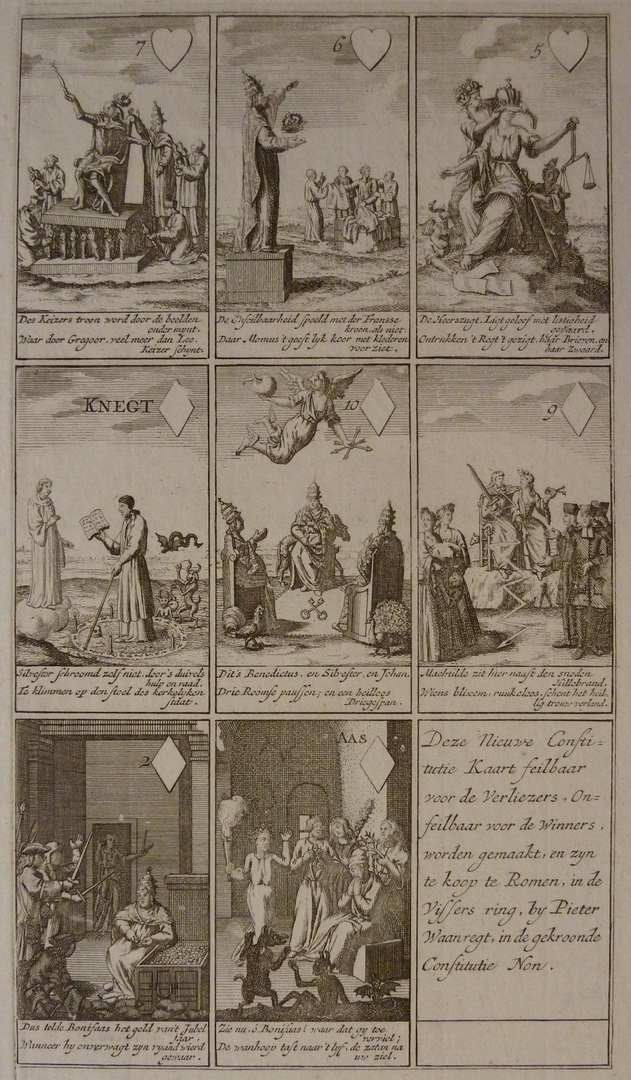 7
Des Keizers troon word door de beelden
onder mynt.
Waar door Gregoor, veel meer dan Leo,
Keizer schynt.
6
De Onfeilbaarheid speeld met der Fransse
kroon, als niet.
Daar Momus 't geestlyk koor met klederen
voor ziet.
5
De Heerszugt, Ligtgeloof met listigheid
gepaard.
Ontrukken 't Regt 't gezigt, haar Brieven, en
haar Zwaard.
KNEGT
Silvester schroomd zelf niet, door's duivels
hulp en raad,
Te klimmen op den stoel des kerkelyken
staat.
10
Dit's Benedictus, en Silvester, en Johan,
Drie Roomse paussen; en een heilloos
Driegespan.
9
Machtilde zit hier naast den snoden
Hillebrand,
Wiens bloeem, ruukeloos, schent het heil
lig trouw verband.
2
Dus telde Bonifaas het geld van't Jubel
jaar,
Wanneer hy onverwagt zyn vyand wierd
gewaar.
AAS
Zie nu, ô Bonifaas! waar dat gy toe
verviel;
De wanhoop tast naar't lyf, de zatan na
uw ziel.
Deze Nieuwe Consti=
tutie Kaart feilbaar
voor de Verliezers, On=
feilbaar voor de Winners,
worden gemaakt, en zyn
te koop te Romen, in de
Vissers ring, by Pieter
Waanregt, in de gekroonde
Constitutie Non.